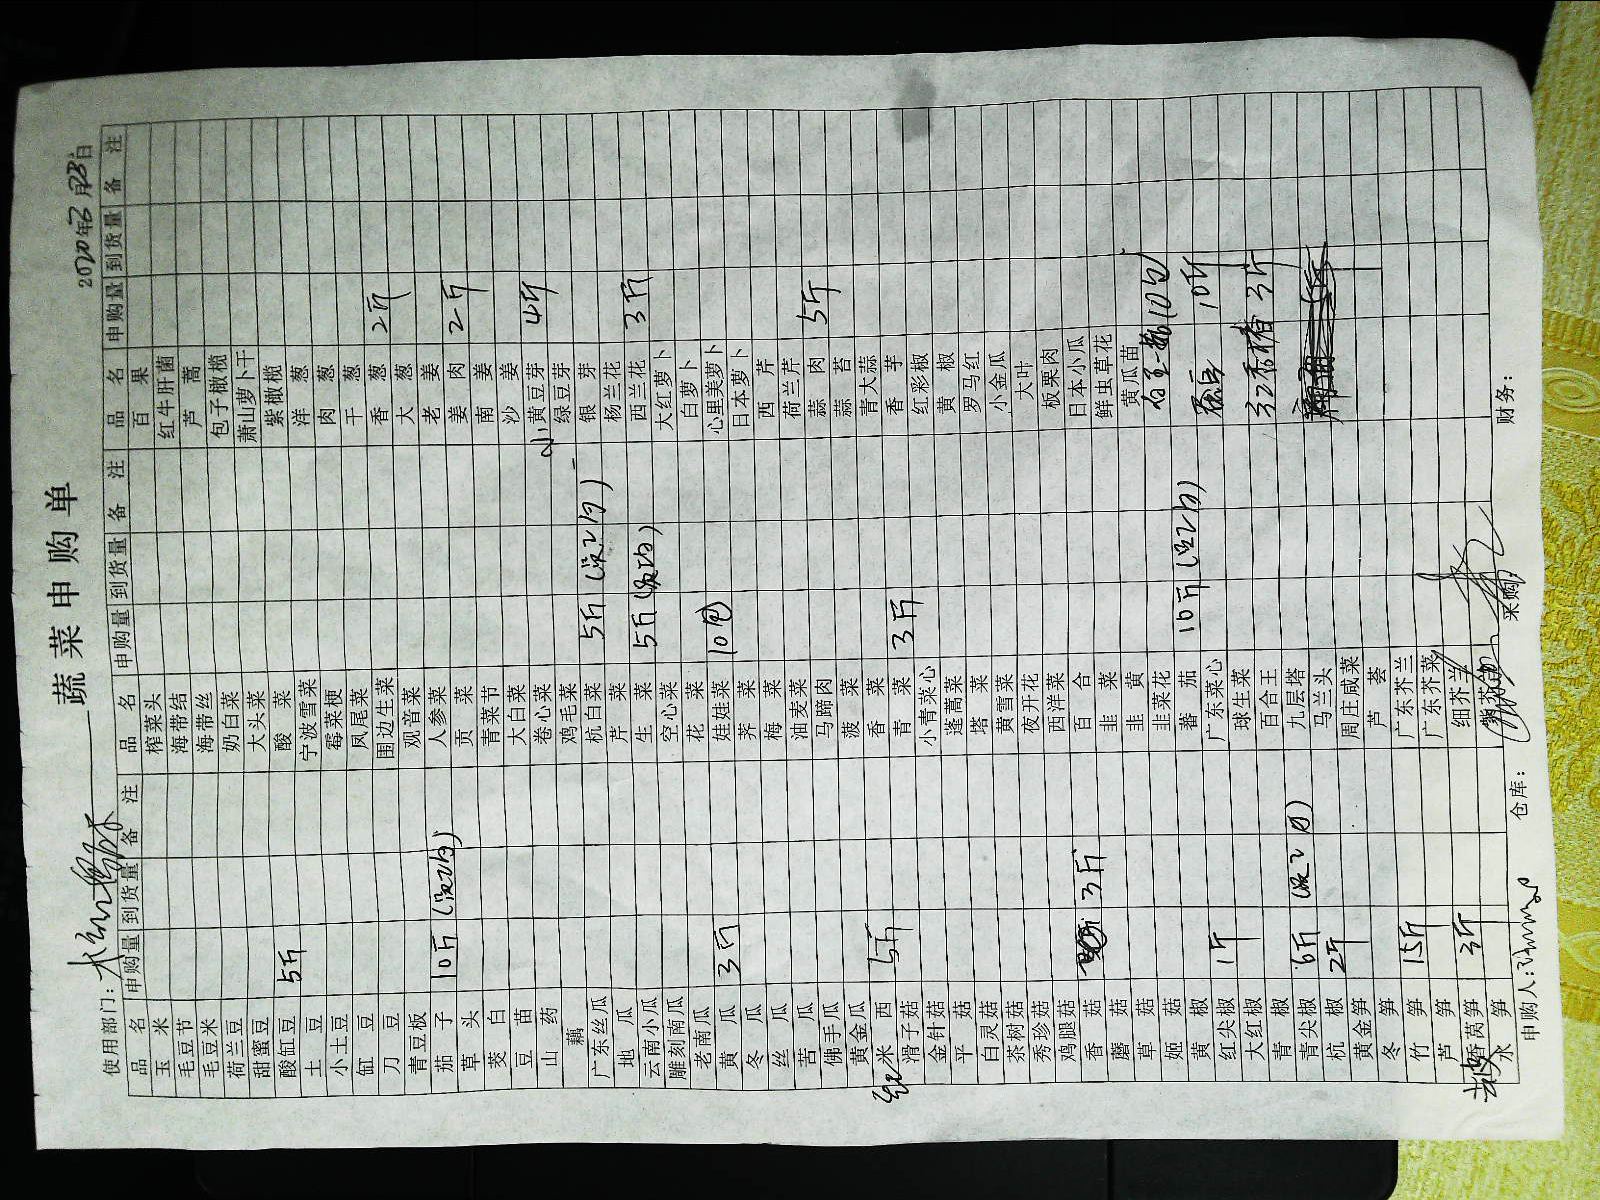 蔬菜申购单
使用部门：
2020年6月23日
品名 申购量 到货量 备注 品名 申购量 到货量 备注 品名 申购量 到货量 备注
玉米 榨菜头 百果
毛豆节 海带结 红牛肝菌
毛豆米 海带丝 芦蒿
荷兰豆 奶白菜 包子橄榄
甜蜜豆 大头菜 萧山萝卜干
酸缸豆 5斤 酸菜 紫橄榄
土豆 宁波雪菜 洋葱
小土豆 霉菜梗 肉葱
缸豆 凤尾菜 干葱
刀豆 围边生菜 香葱 2斤
青豆板 观音菜 大葱
茄子 10斤 人参菜 老姜
草头 贡菜 姜肉 2斤
茭白 青菜节 南姜
豆苗 大白菜 沙姜
山药 卷心菜 小黄豆芽 4斤
藕 鸡毛菜 绿豆芽
广东丝瓜 杭白菜 5斤 银芽
地瓜 芹菜 杨兰花
云南小瓜 生菜 5斤 西兰花 3斤
雕刻南瓜 空心菜 大红萝卜
老南瓜 花菜 白萝卜
黄瓜 3斤 娃娃菜 10包 心里美萝卜
冬瓜 荠菜 日本萝卜
丝瓜 梅菜 西芹
苦瓜 油麦菜 荷兰芹
佛手瓜 马蹄肉 蒜肉 5斤
黄金瓜 菠菜 蒜苔
红米西 5斤 香菜 青大蒜
滑子菇 青菜 3斤 香芋
金针菇 小青菜心 红彩椒
平菇 蓬蒿菜 黄椒
白灵菇 塔菜 罗马红
茶树菇 黄雪菜 小金瓜
秀珍菇 夜开花 大叶
鸡腿菇 西洋菜 板栗肉
香菇 3斤 百合 日本小瓜
蘑菇 韭菜 鲜虫草花
草菇 韭黄 黄瓜苗
姬菇 韭菜花
黄椒 蕃茄 10斤 10斤
红尖椒 1斤 广东菜心
大红椒 球生菜 3斤
青椒 百合王
青尖椒 6斤 九层塔
杭椒 2斤 马兰头
黄金笋 周庄咸菜
冬笋 芦荟
竹笋 15斤 广东芥兰
芦笋 广东芥菜
香莴笋 3斤 细芥兰
水笋
申购人： 仓库： 采购： 财务：